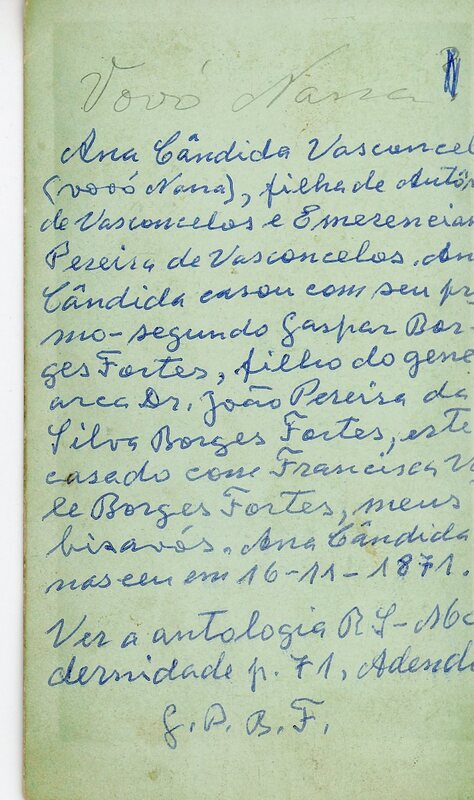 Vovó Nana
Ana Cândida Vasconcel
(vovó Nana), filha de Antôn
de Vasconcelos e Emerencian
Pereira de Vasconcelos. An
Cândida casou com seu pri
mo-segundo Gaspar Bor
ges Fortes, filho do gene
arca Dr. João Pereira da
Silva Borges Fortes, este
casado com Francisca Va
le Borges Fortes, meus
bisavós. Ana Cândida
nasceu em 16-11-1871.
Ver a antologia RS-Mo
dernidade p. 71, Adend
G. P. B. F.